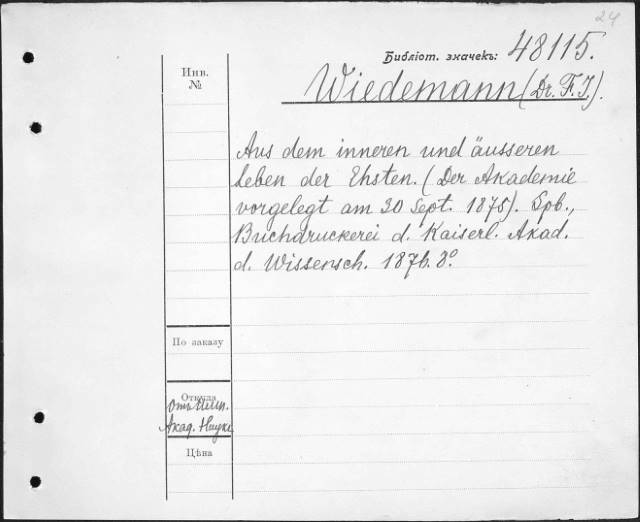 24
Библіот. значекъ: 48115.
Инв.
№
Wiedemann (Dr. F. J.).
Aus dem inneren und äusseren
Leben der Ehsten. (Der Akademie
vorgelegt am 30 Sept. 1875). Spb.,
Buchdruckerei d. Kaiserl. Akad.
d. Wissensch. 1876. 8º.
По заказу
Откуда
Отъ Имп.
Акад. Наукъ
Цѣна